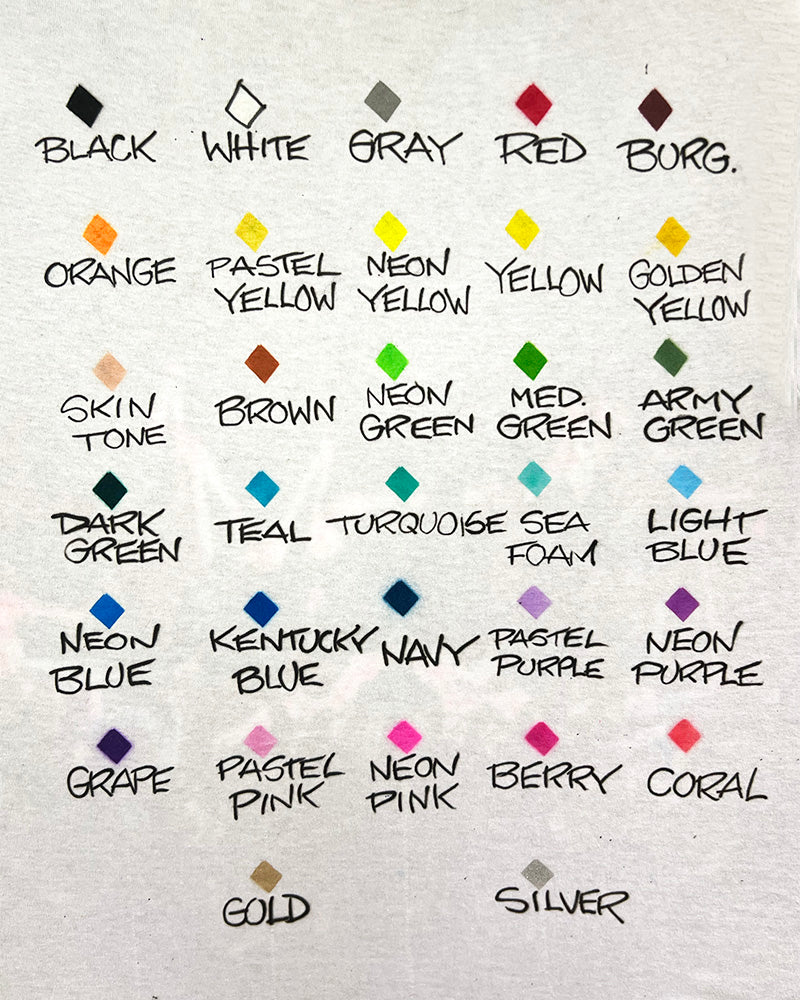 BLACK
WHITE
GRAY
RED
BURG.
ORANGE
PASTEL
YELLOW
NEON
YELLOW
YELLOW
GOLDEN
YELLOW
SKIN
TONE
BROWN
NEON
GREEN
MED.
GREEN
ARMY
GREEN
DARK
GREEN
TEAL
TURQUOISE
SEA
FOAM
LIGHT
BLUE
NEON
BLUE
KENTUCKY
BLUE
NAVY
PASTEL
PURPLE
NEON
PURPLE
GRAPE
PASTEL
PINK
NEON
PINK
BERRY
CORAL
GOLD
SILVER